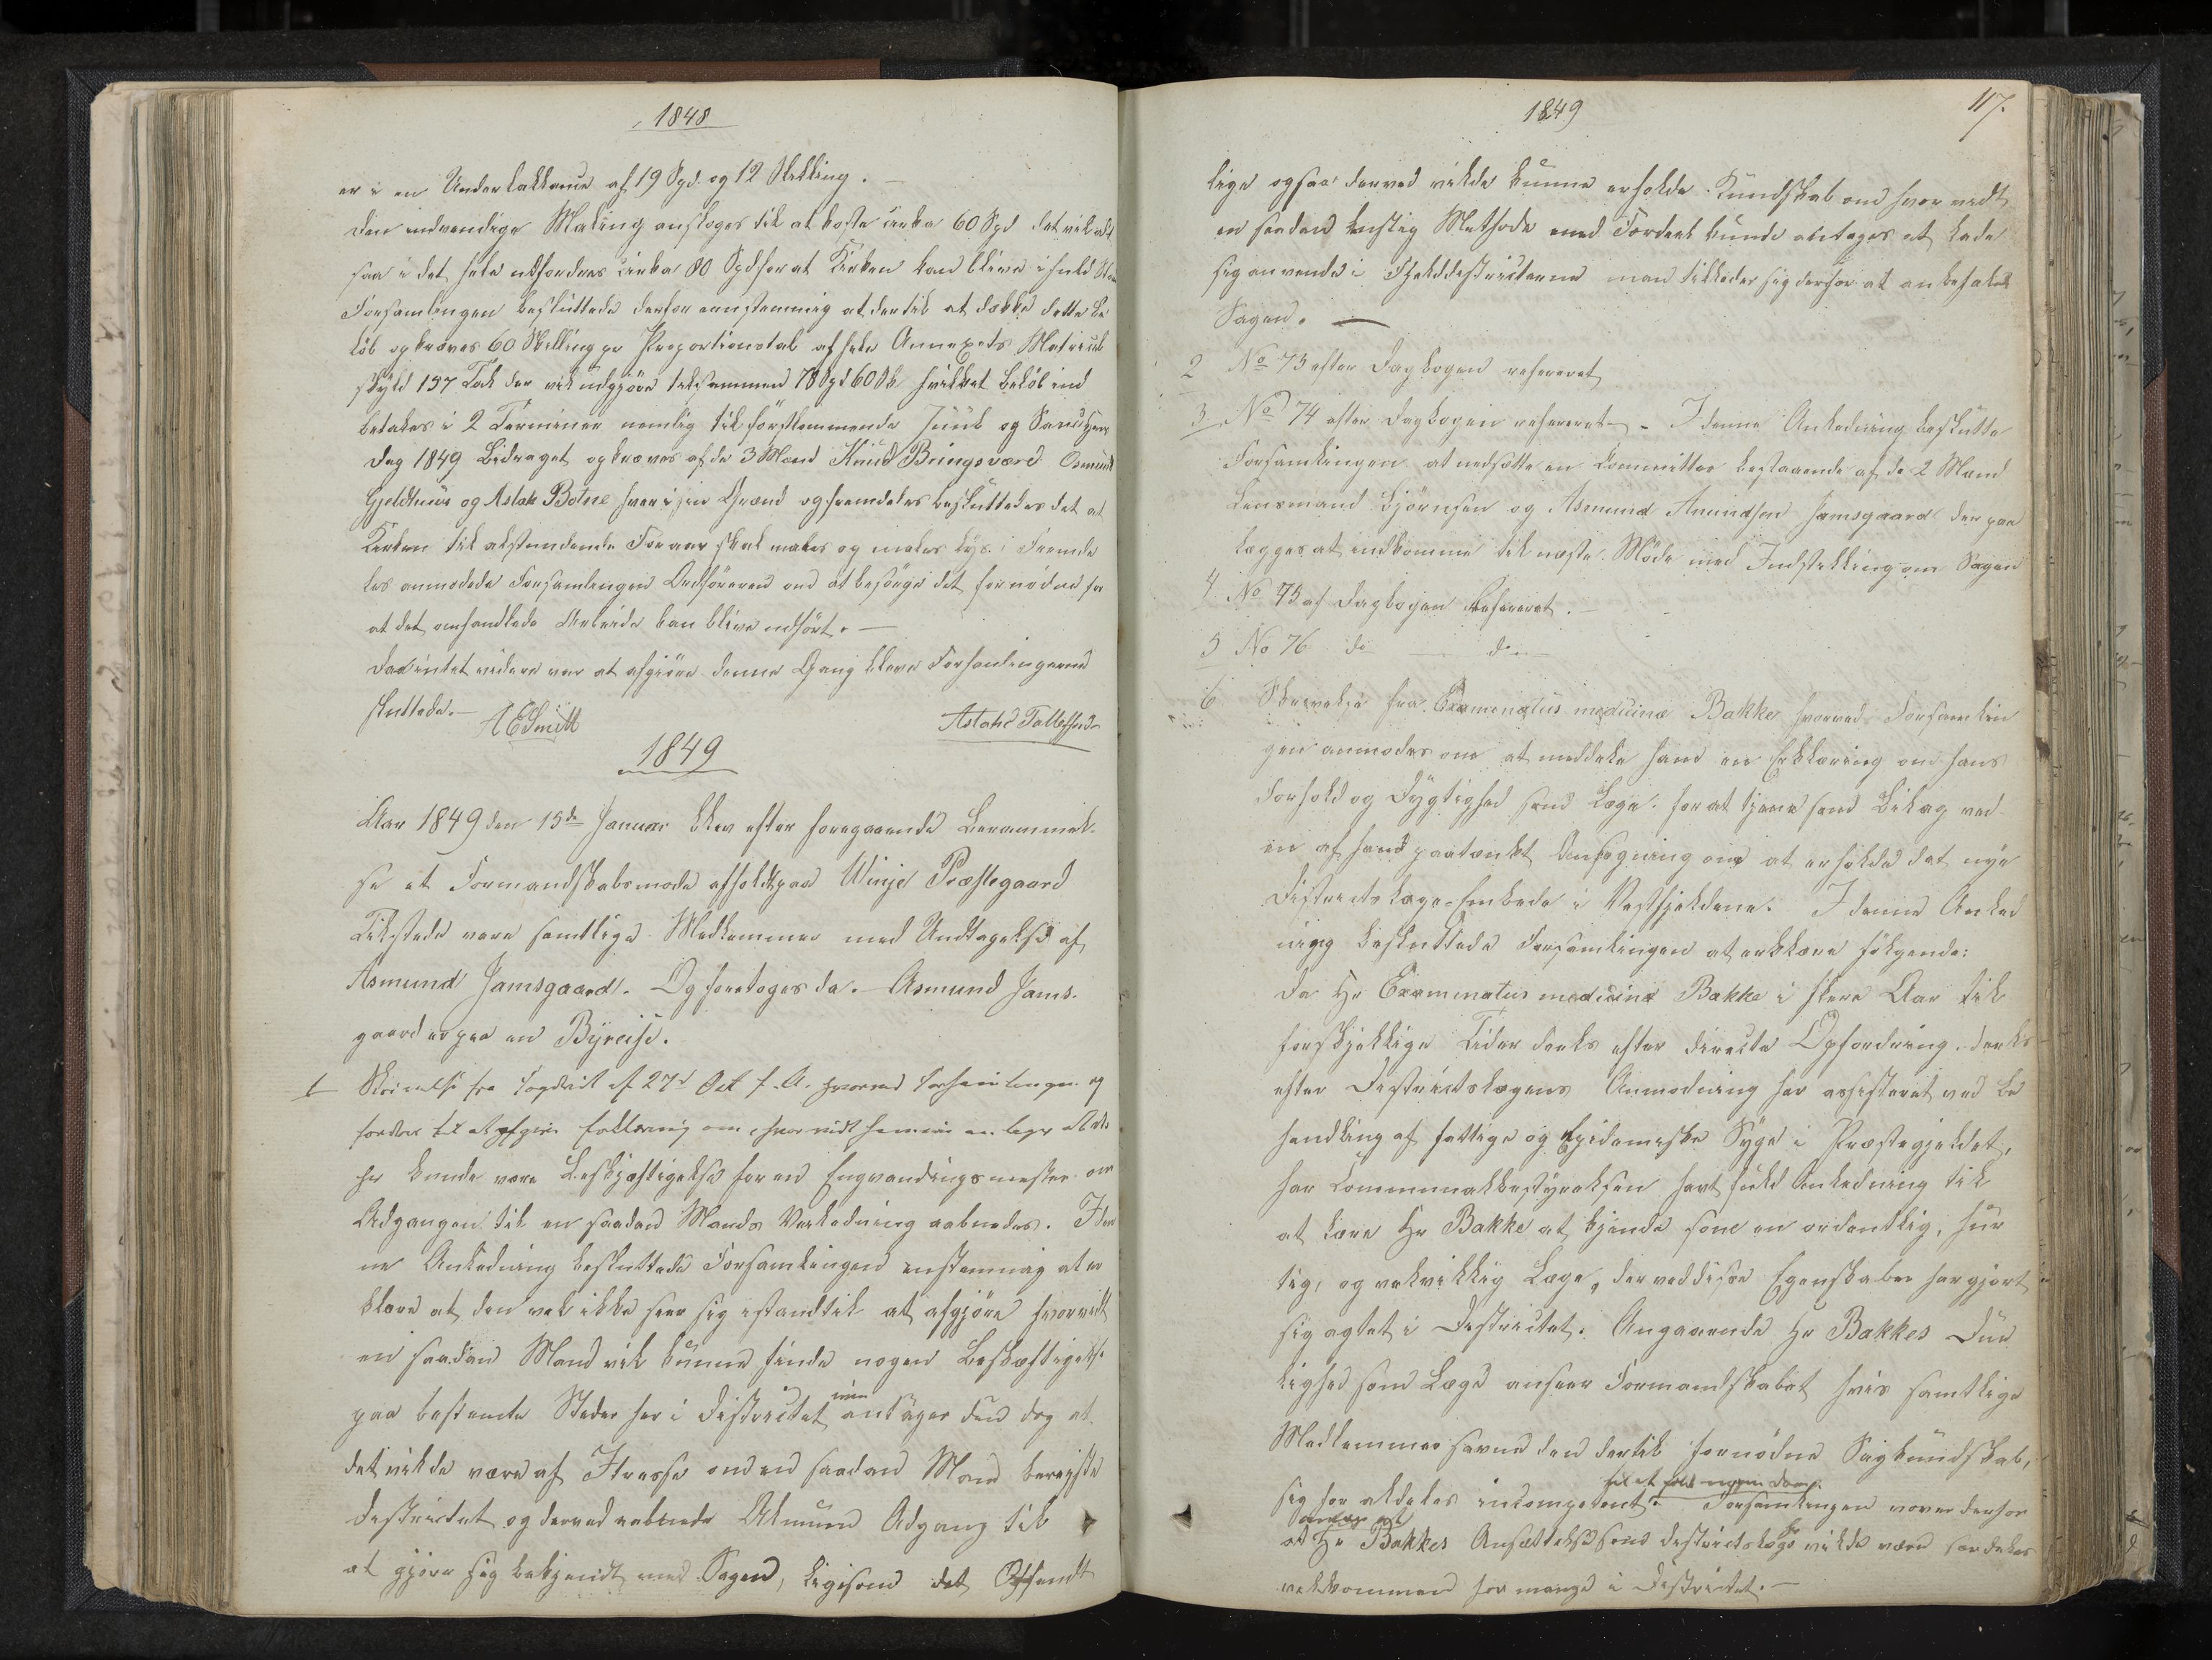 1848
er i en Underballance af 19 Spd og 12 Skilling. —
Den indvendige Maling ansloges til at koste cirka 60 Spd det vil alt
saa i det hele udfordres cirka 80 Spd for at Kirken kan blive i fuld
Forsamlingen besluttede derfor eenstemmig at der til at dække dette Be
løb opkræves 60 Skilling pr Proportionstal af hele Annexets Matricul
skyld 157 der vil udgjøre tilsammen 78 Spd 60 Sk hvilket Beløb ind
betales i 2 Terminer nemlig til førstkommende Juul og Sanct Hans
Dag 1849 Bidraget opkræves af de 3 Mænd Knud Bringsværd Osmund
Gjeldhuus og Aslak Botne hver i sin Grænd og fremdeles besluttedes det at
Kirken til alstundende Foraar skal males og males lys. Fremde
les anmodede Forsamlingen Ordføreren om at besørge det fornødne for
at det omhandlede Arbeide kan blive udført. —
Da intet videre var at afgjøre denne Gang bleve Forhandlingerne
sluttede. —
A E Smitt
Aslak Tallefsen
1849
Aar 1849 den 15de Januar blev efter foregaaende Berammel-
se et Formandskabsmøde afholdt paa Winje Præstegaard
Tilstede vare samtlige Medlemmer med Undtagelse af
Asmund Jamsgaard. Og foretoges da. Asmund Jams-
gaard er paa en Byreise.
1 Skrivelse fra Fogderiet af 27de Oct f. A. hvorved Forsamlingen op
fordres til at afgive Erklæring om hvorvidt
her kunde være Beskjæftigelse for en Engvandingsmester om
Adgangen til en saadan Mands Veiledning aabnedes. I den
ne Anledning besluttede Forsamlingen enstemmig at er
klære at den vel ikke seer sig istand til at afgjøre hvorvidt
en saadan Mand vil kunne finde nogen Beskæftigelse
paa bestemte Steder her i Districtet men antager den dog at
det vilde være af Intresse om en saadan Mand bereiste
Districtet og derved aabnede Almuen Adgang til
at gjøre sig bekjendt med Sagen, ligesom det Offendt
1849
117.
lige ogsaa derved vilde kunne erholde Kundskab om hvorvidt
en saadan kunstig Methode med Fordeel kunde antages at lade
sig anvende i Fjelddistricterne man tillader sig derfor at anbefale
Sagen. —
2 No 73 efter Dagbogen refereret
3 No 74 efter Dagbogen refereret. — I denne Anledning beslutte
Forsamlingen at nedsætte en Committee bestaaende af de 2 Mænd
Lensmand Bjørnsen og Asmund Amundsen Jamsgaard der paa
lægges at indkomme til næste Møde med Indstilling om Sagen
4 No 75 af Dagbogen Refereret. —
5 No 76 do — do —
6 Skrivelse fra Examinatus medicinæ Bakke hvorved Forsamlin
gen anmodes om at meddele ham en Erklæring om hans
Forhold og Dygtighed som Læge. for at tjene som Bilag ved
en af ham paatænkt Ansøgning om at erholde det nye
Districtslæge-Embede i Vestfjeldene. I denne Anled
ning besluttede Forsamlingen at erklære følgende:
Da Hr Examinatus medicinæ Bakke i flere Aar til
forskjellige Tider deels efter directe Opfordring. deels
efter Districtslægens Anmodning har assisteret ved Be
handling af fattige og Epidemiske Syge i Præstegjeldet,
har Communalbestyrelsen havt fuld Anledning til
at lære Hr Bakke at kjende som en ordentlig, hur
tig, og velvillig Læge, der ved disse Egenskaber har gjort
sig agtet i Districtet. Angaaende Hr Bakkes Due
lighed som Læge anseer Formandskabet hvis samtlige
Medlemmer savne den dertil fornødne Sagkundskab,
sig for aldeles incompetent. Forsamlingen vover derfor
til at
at Hr Bakkes Ansættelse som Districtslæge vilde være særdeles
velkommen for mange i Districtet. —